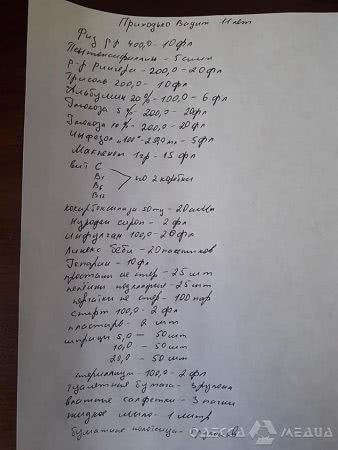 Приходько Вадим 11 лет
Физ р-р 400,0 - 10 фл
Пентоксифиллин - 5 амп
р-р Рингера - 200,0 - 20 фл
Трисоль 200,0 - 10 фл
Альбумин 20% - 100,0 - 6 фл
Глюкоза 5% - 200,0 - 20 фл
Глюкоза 10% - 200,0 - 20 фл
Инфезол "100" - 250,0 - 5 фл
Макпенем 1 гр - 15 фл
вит С
В1
В6
В12
по 2 коробки
кокарбоксилаза 50 мг - 20 амп
Нурофен сироп - 2 фл
Инфулган 100,0 - 20 фл
Линекс беби - 20 пакетиков
Гепарин - 10 фл
простыни не стер - 25 шт
пелёнки - 25 шт
перчатки не стер - 100 пар
спирт 100,0 - 2 фл
пластырь - 2 шт
шприцы 5,0 - 50 шт
10,0 - 50 шт
20,0 - 50 шт
стериллиум - 100,0 - 2 фл
туалетная бумага - 3 рулона
влажные салфетки - 3 пачки
жидкое мыло - 1 литр
бумажные полотенца
ОДЕССА МЕДИА